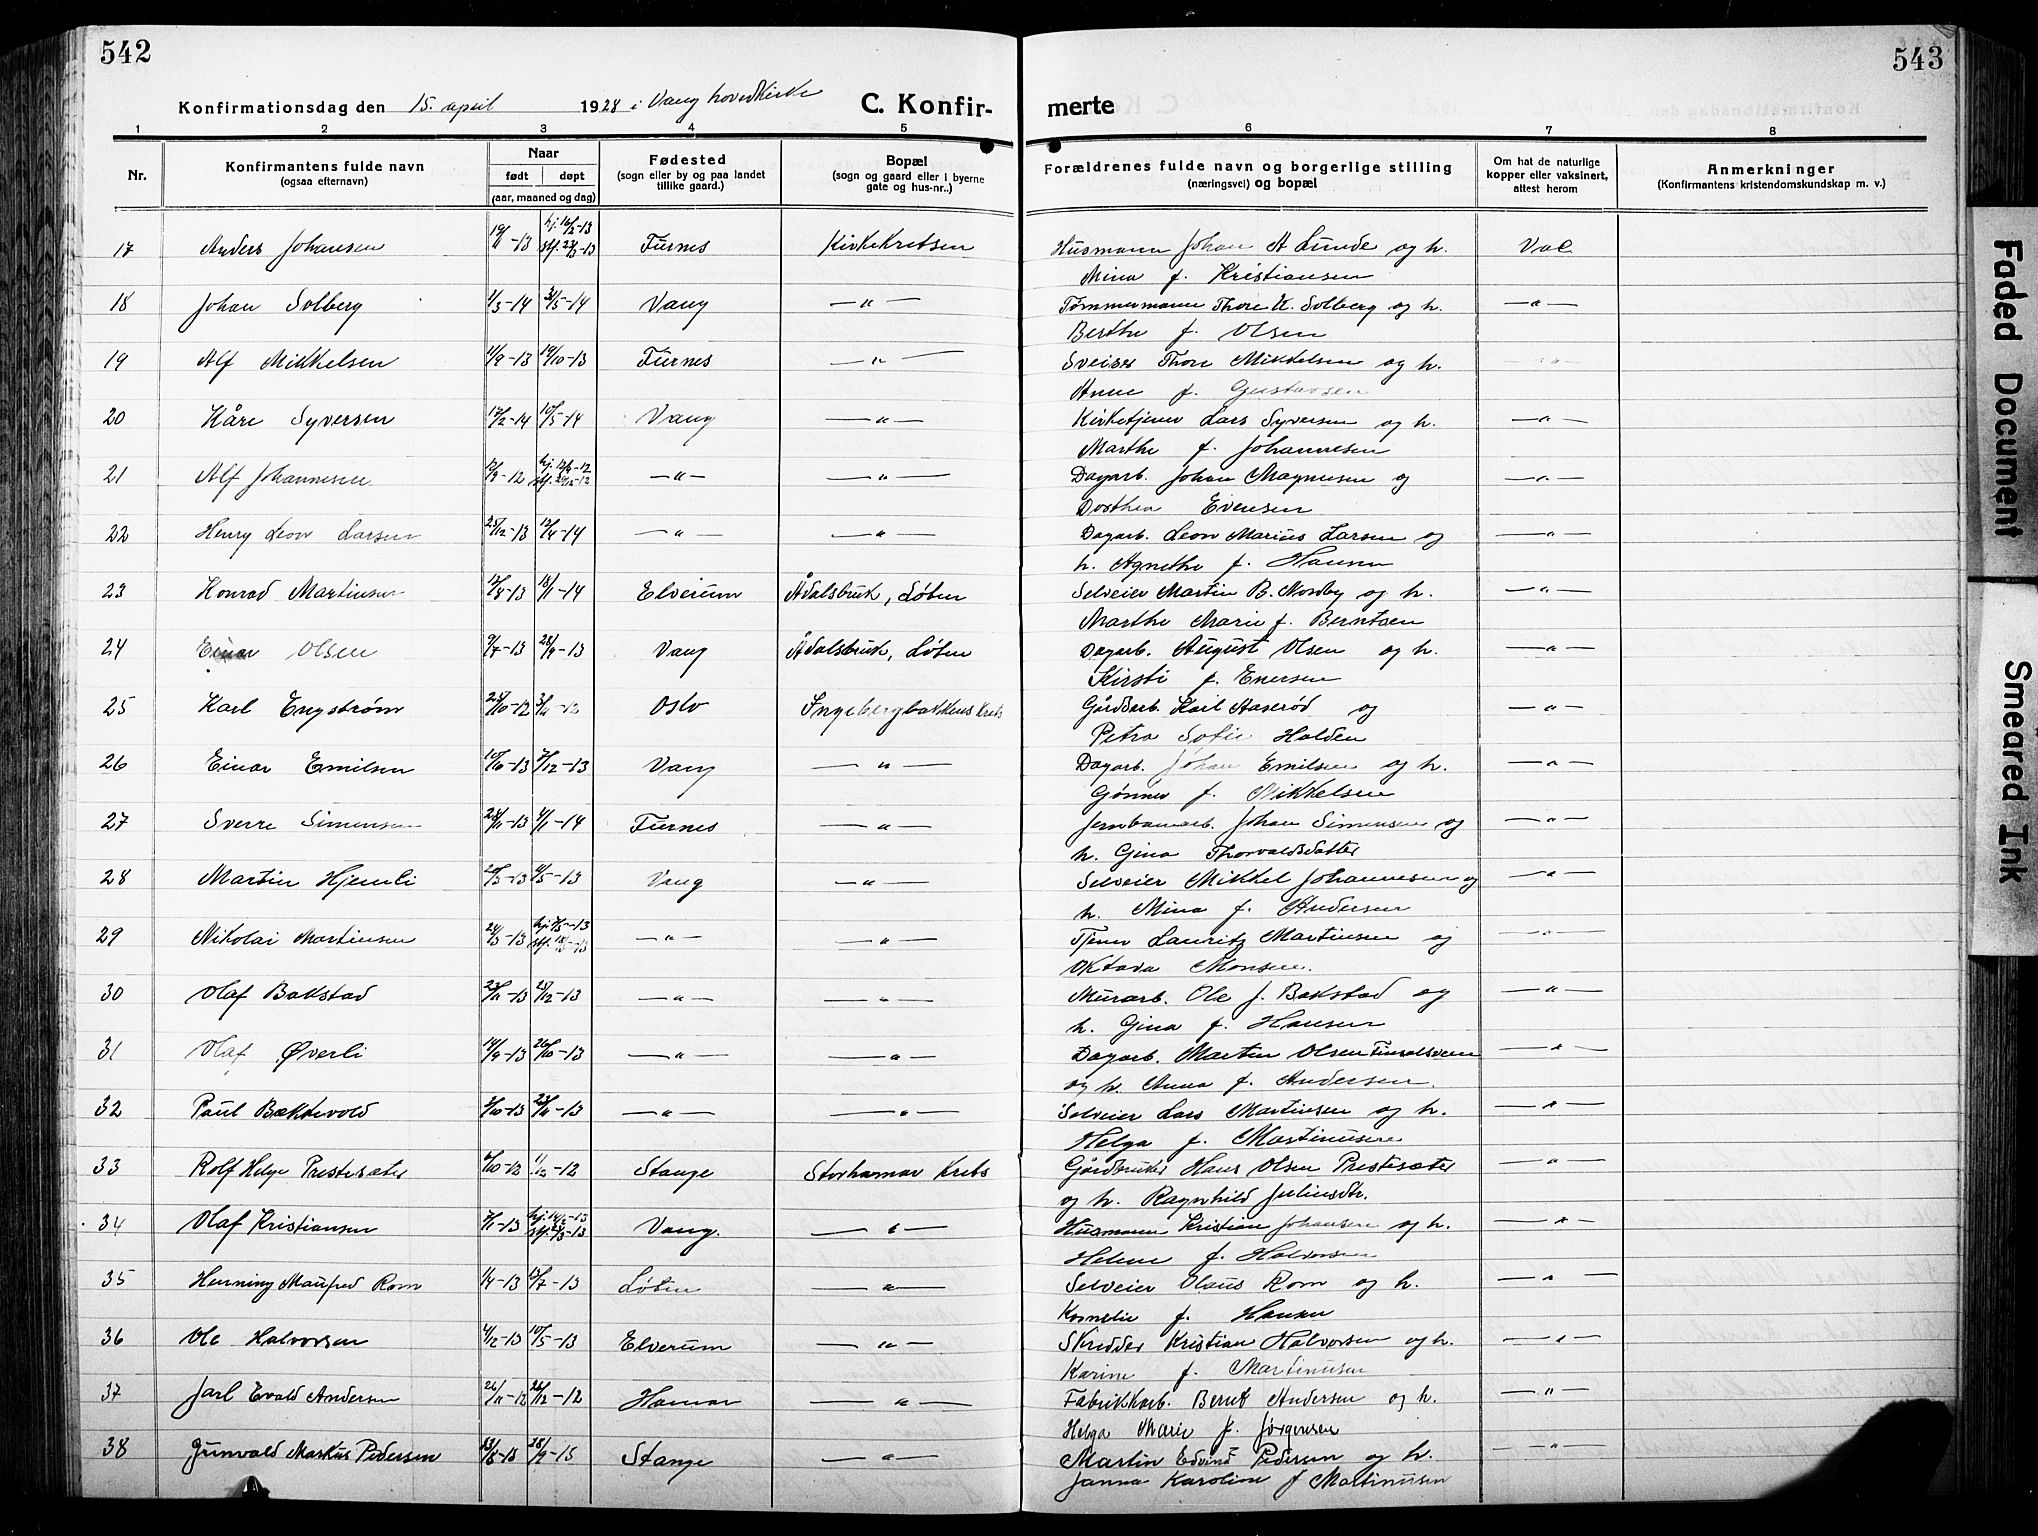 542
543
Konfirmationsdag den 15. april 1928 i Vang hovedkirke
C. Konfir-
merte
1 2 3 4 5 6 7 8
Nr.
Konfirmantens fulde navn
(ogsaa efternavn)
Naar
født døpt
(aar, maaned og dag)
Fødested
(sogn eller by og paa landet
tillike gaard.)
Bopæl
(sogn og gaard eller i byerne
gate og hus-nr..)
Forældrenes fulde navn og borgerlige stilling
(næringsvei) og bopæl
Om hat de naturlige
kopper eller vaksinert,
attest herom
Anmerkninger
(Konfirmantens kristendomskundskap m. v.)
17 Anders Johansen Furnes Kirkekretsen Husmann Johan A Lunde og h. Vac
Mina f. Kristiansen
18 Johan Solberg 1/3-14 31/5-14 Vang —"— Tømmermann Thore K. Solberg og h. —"—
Berthe f. Olsen
19 Alf Mikkelsen 11/9-13 19/10-13 Furnes —"— Sveiser Thore Mikkelsen og h. "
Anne f. Gustavsen
20 Kåre Syversen 17/2-14 10/5-14 Vang —"— Kirketjener Lars Syversen og h. —"—
Marthe f. Johannesen
21 Alf Johannesen —"— —"— Dagarb. Johan Magnusen og —"—
Dorthea Evensen
22 Henry Leon Larsen 25/12-13 12/4-14 —"— —"— Dagarb. Leon Marius Larsen og —"—
h. Agnethe f. Hansen
23 Konrad Martinsen 17/8-13 18/1-14 Elverum Ådalsbruk, Løten Selveier Martin B. Nordby og h. —"—
Marthe Marie f. Berntsen
24 Einar Olsen 9/7-13 28/9-13 Vang Ådalsbruk, Løten Dagarb. August Olsen og h. —"—
Kirsti f. Enersen
25 Karl Engstrøm Oslo Ingebergbakkens Krets Gårdsarb. Karl Aaserød og —"—
Petra Sofie Holden
26 Einar Emilsen 10/10-13 7/12-13 Vang —"— Dagarb. Johan Emilsen og h. —"—
Gønner f. Mikkelsen
27 Sverre Simensen Furnes —"— Jernbanearb. Johan Simensen og —"—
h. Gina Thorvaldsdatter
28 Martin Hjemli Vang —"— Selveier Mikkel Johannesen og —"—
h. Mina f. Andersen
29 Nikolai Martinsen —"— —"— Tjener Lauritz Martinsen og —"—
Oktava Monsen.
30 Olaf Bakstad 23/11-13 25/12-13 —"— —"— Murarb. Ole J. Bakstad og —"—
h. Gina f. Hansen
31 Olaf Øverli 14/9-13 26/10-13 —"— —"— Dagarb. Martin Olsen —"—
og h. Anna f. Andersen.
32 Paul Bækkevold —"— —"— Selveier Lars Martinsen og h. —"—
Helga f. Martinusen
33 Rolf Helge Prestesæter Stange Storhamar Krets Gårdbruker Hans Olsen Prestesæter —"—
og h. Ragnhild Juliusdtr.
34 Olaf Kristiansen Vang. —"— Husmann Kristian Johansen og h. —"—
Helene f. Halvorsen
35 Henning Manfred Rom 1/4-13 13/7-13 Løten —"— Selveier Olaus Rom og h. —"—
Kornelie f. Hansen
36 Ole Halvorsen Elverum —"— Skredder Kristian Halvorsen og h. —"—
Karine f. Martinusen
37 Jarl Evald Andersen 26/11-12 26/12-12 Hamar —"— Fabrikkarb. Bernt Andersen og h. —"—
Helga Marie f. Jørgensen
38 Gunvald Markus Pedersen Stange —"— Martin Edvind Pedersen og h. —"—
Janna Karoline f Martinusen
Faded Document
Smeared Ink